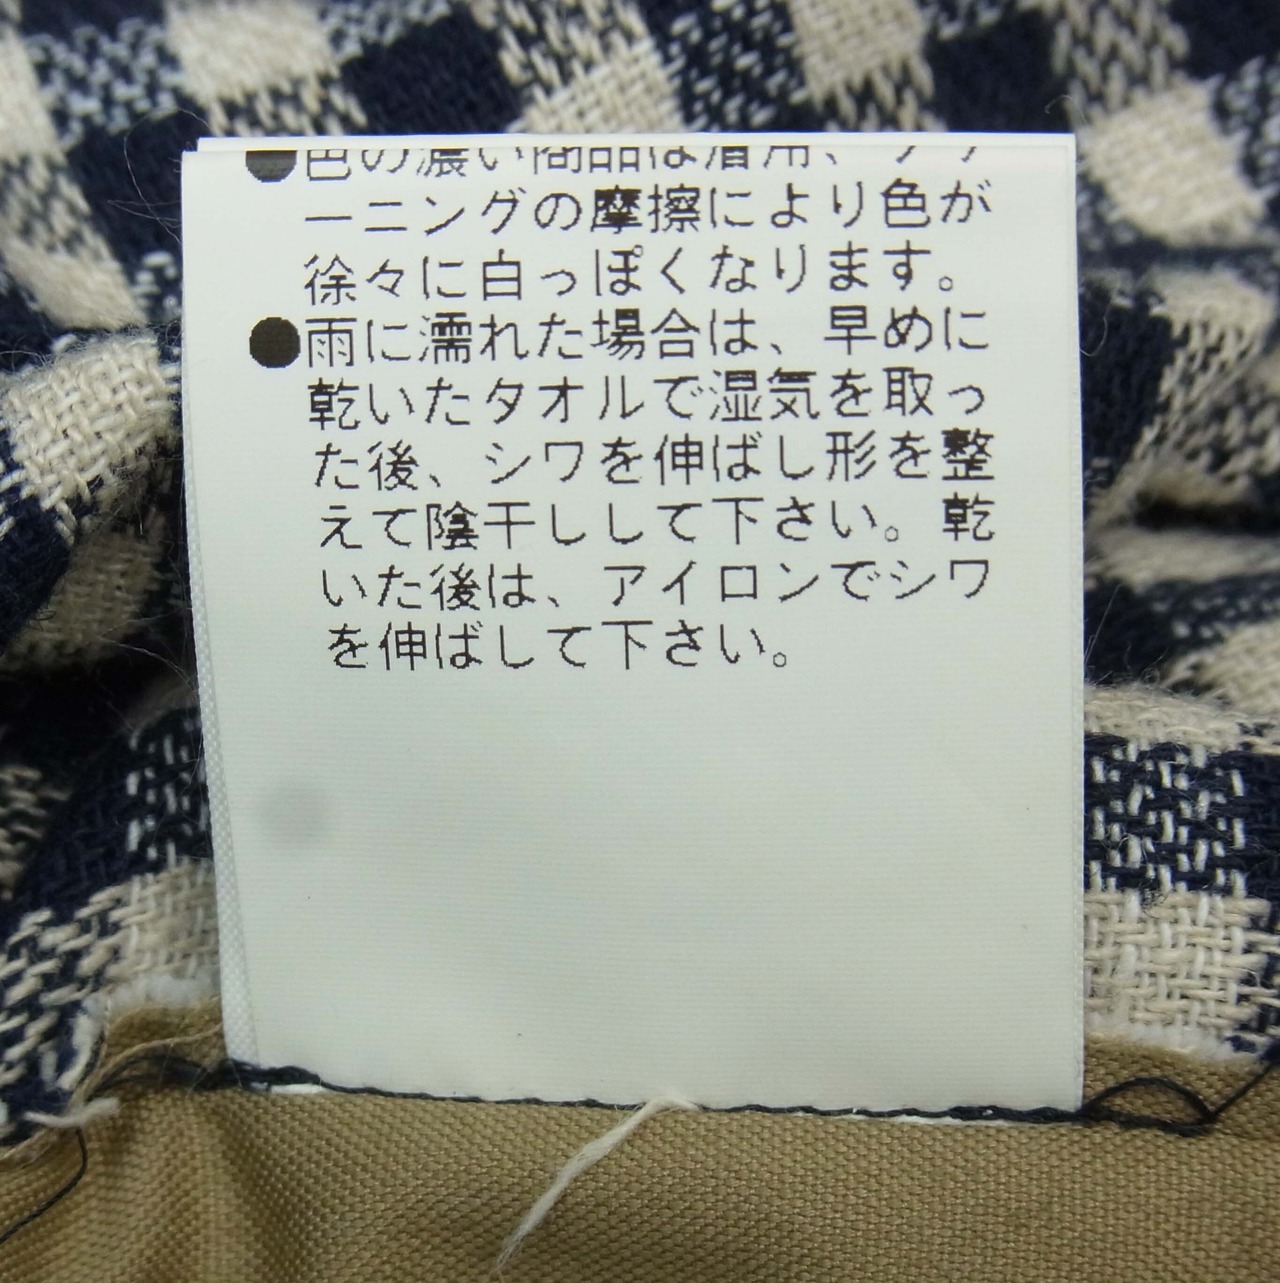 ●色の濃い商品は着用、クリ
ーニングの摩擦により色が
徐々に白っぽくなります。
●雨に濡れた場合は、早めに
乾いたタオルで湿気を取っ
た後、シワを伸ばし形を整
えて陰干しして下さい。乾
いた後は、アイロンでシワ
を伸ばして下さい。